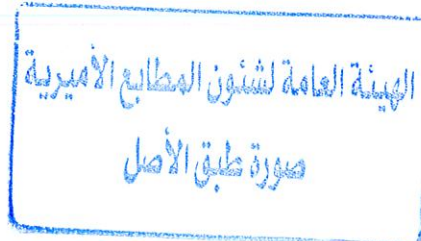 الهيئة العامة لشئون المطابع الأميرية
صورة طبق الأصل